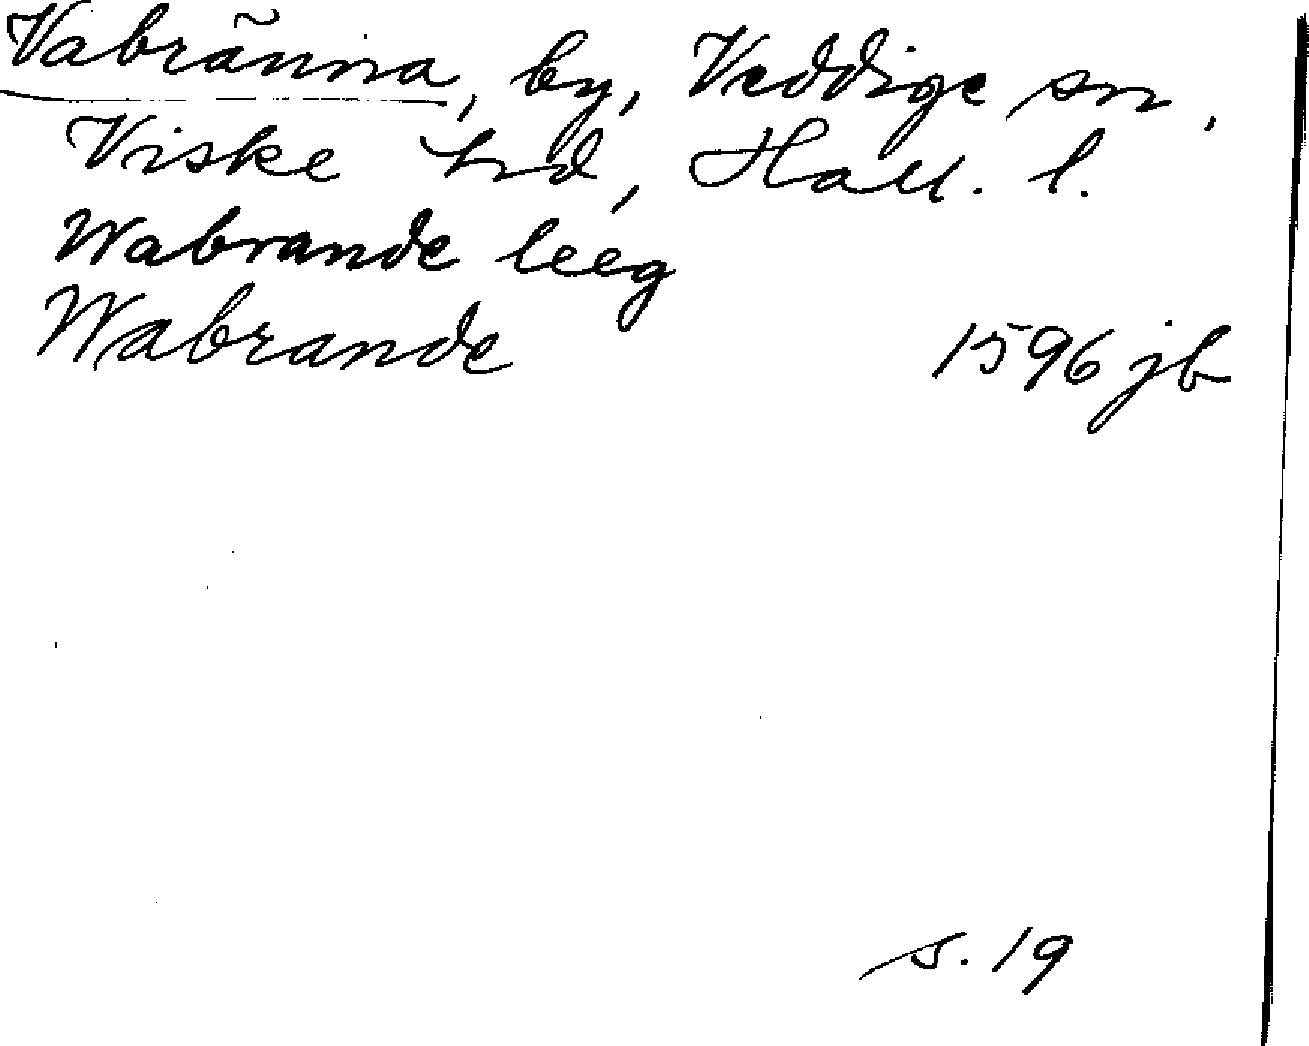 Vabränna, by, Veddige sn,
Viske hd, Hall. l.
Wabrande leeg
Wabrande 1596 jb
s. 19